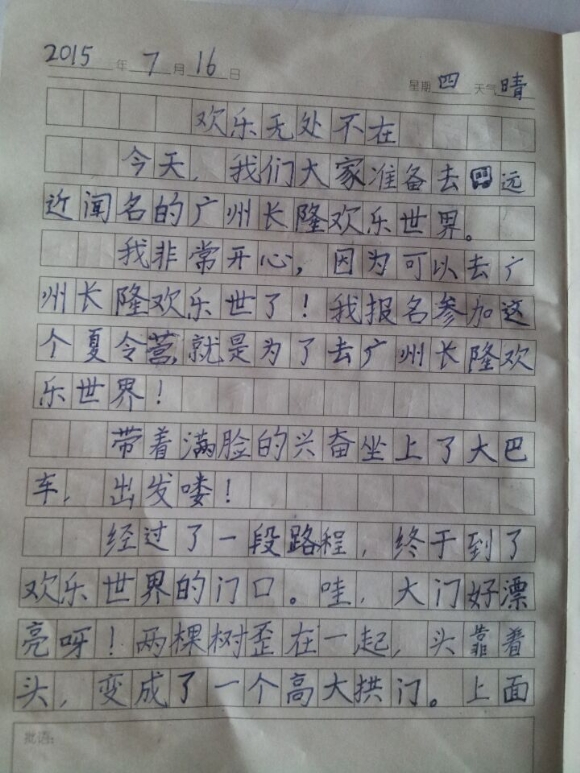 2015年7月16日 星期四 天气晴
欢乐无处不在
今天，我们大家准备去远
近闻名的广州长隆欢乐世界。
我非常开心，因为可以去广
州长隆欢乐世了！我报名参加这
个夏令营,就是为了去广州长隆欢
乐世界！
带着满脸的兴奋坐上了大巴
车，出发喽！
经过了一段路程，终于到了
欢乐世界的门口。哇，大门好漂
亮呀！两棵树歪在一起，头靠着
头，变成了一个高大拱门。上面
批语：